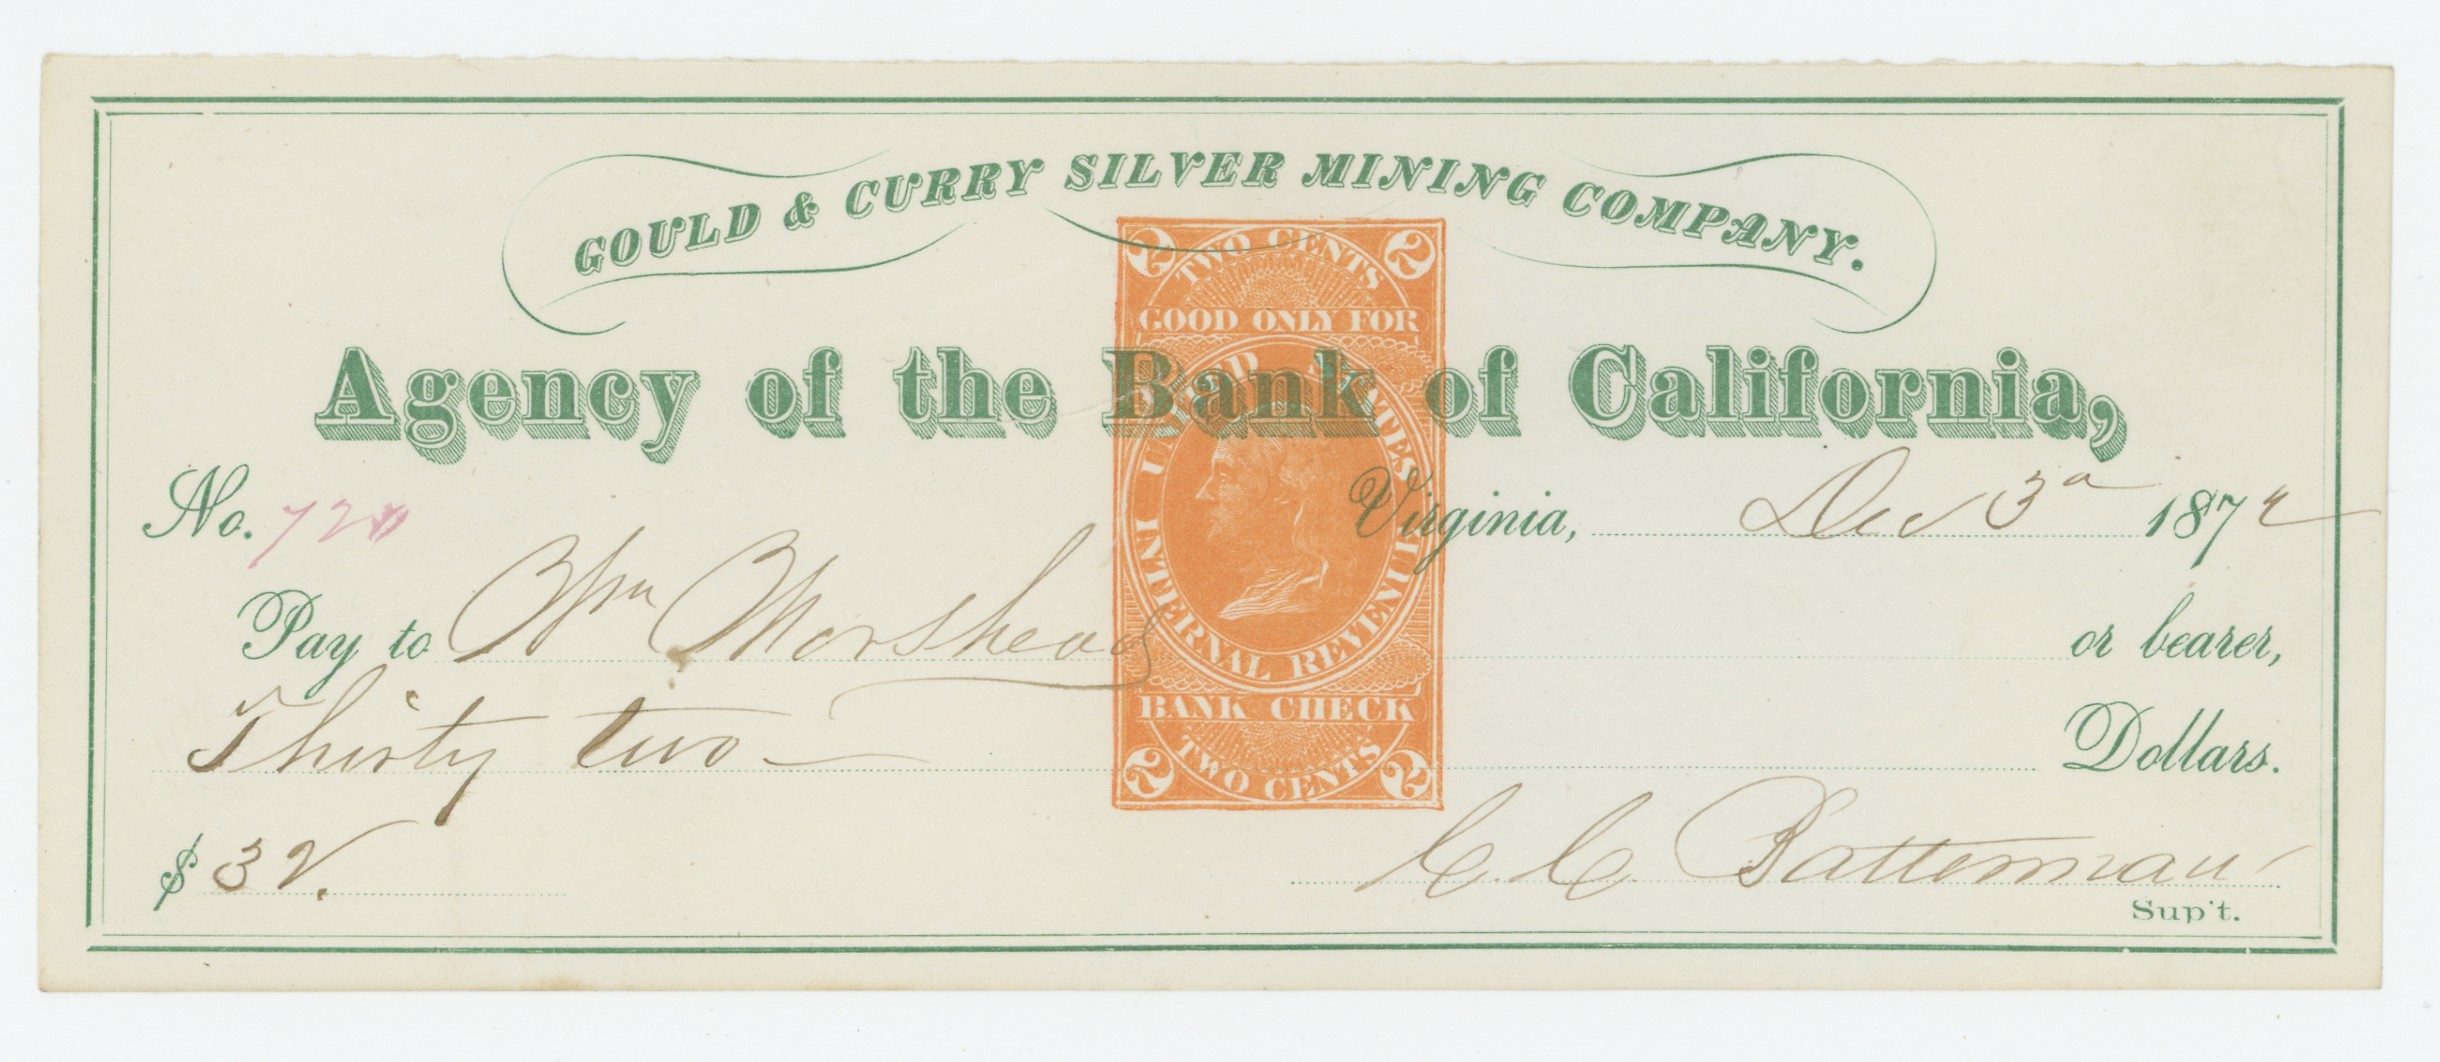 GOULD & CURRY SILVER MINING COMPANY.
2 TWO CENTS 2
GOOD ONLY FOR
Agency of the Bank of California,
UNITED STATES
INTERNAL REVENUE
No. 720
Virginia, Dec 3d 1872
Pay to Wm Morshead or bearer,
BANK CHECK
Thirty two Dollars.
2 TWO CENTS 2
$ 32.
C. C. Batterman
Sup't.